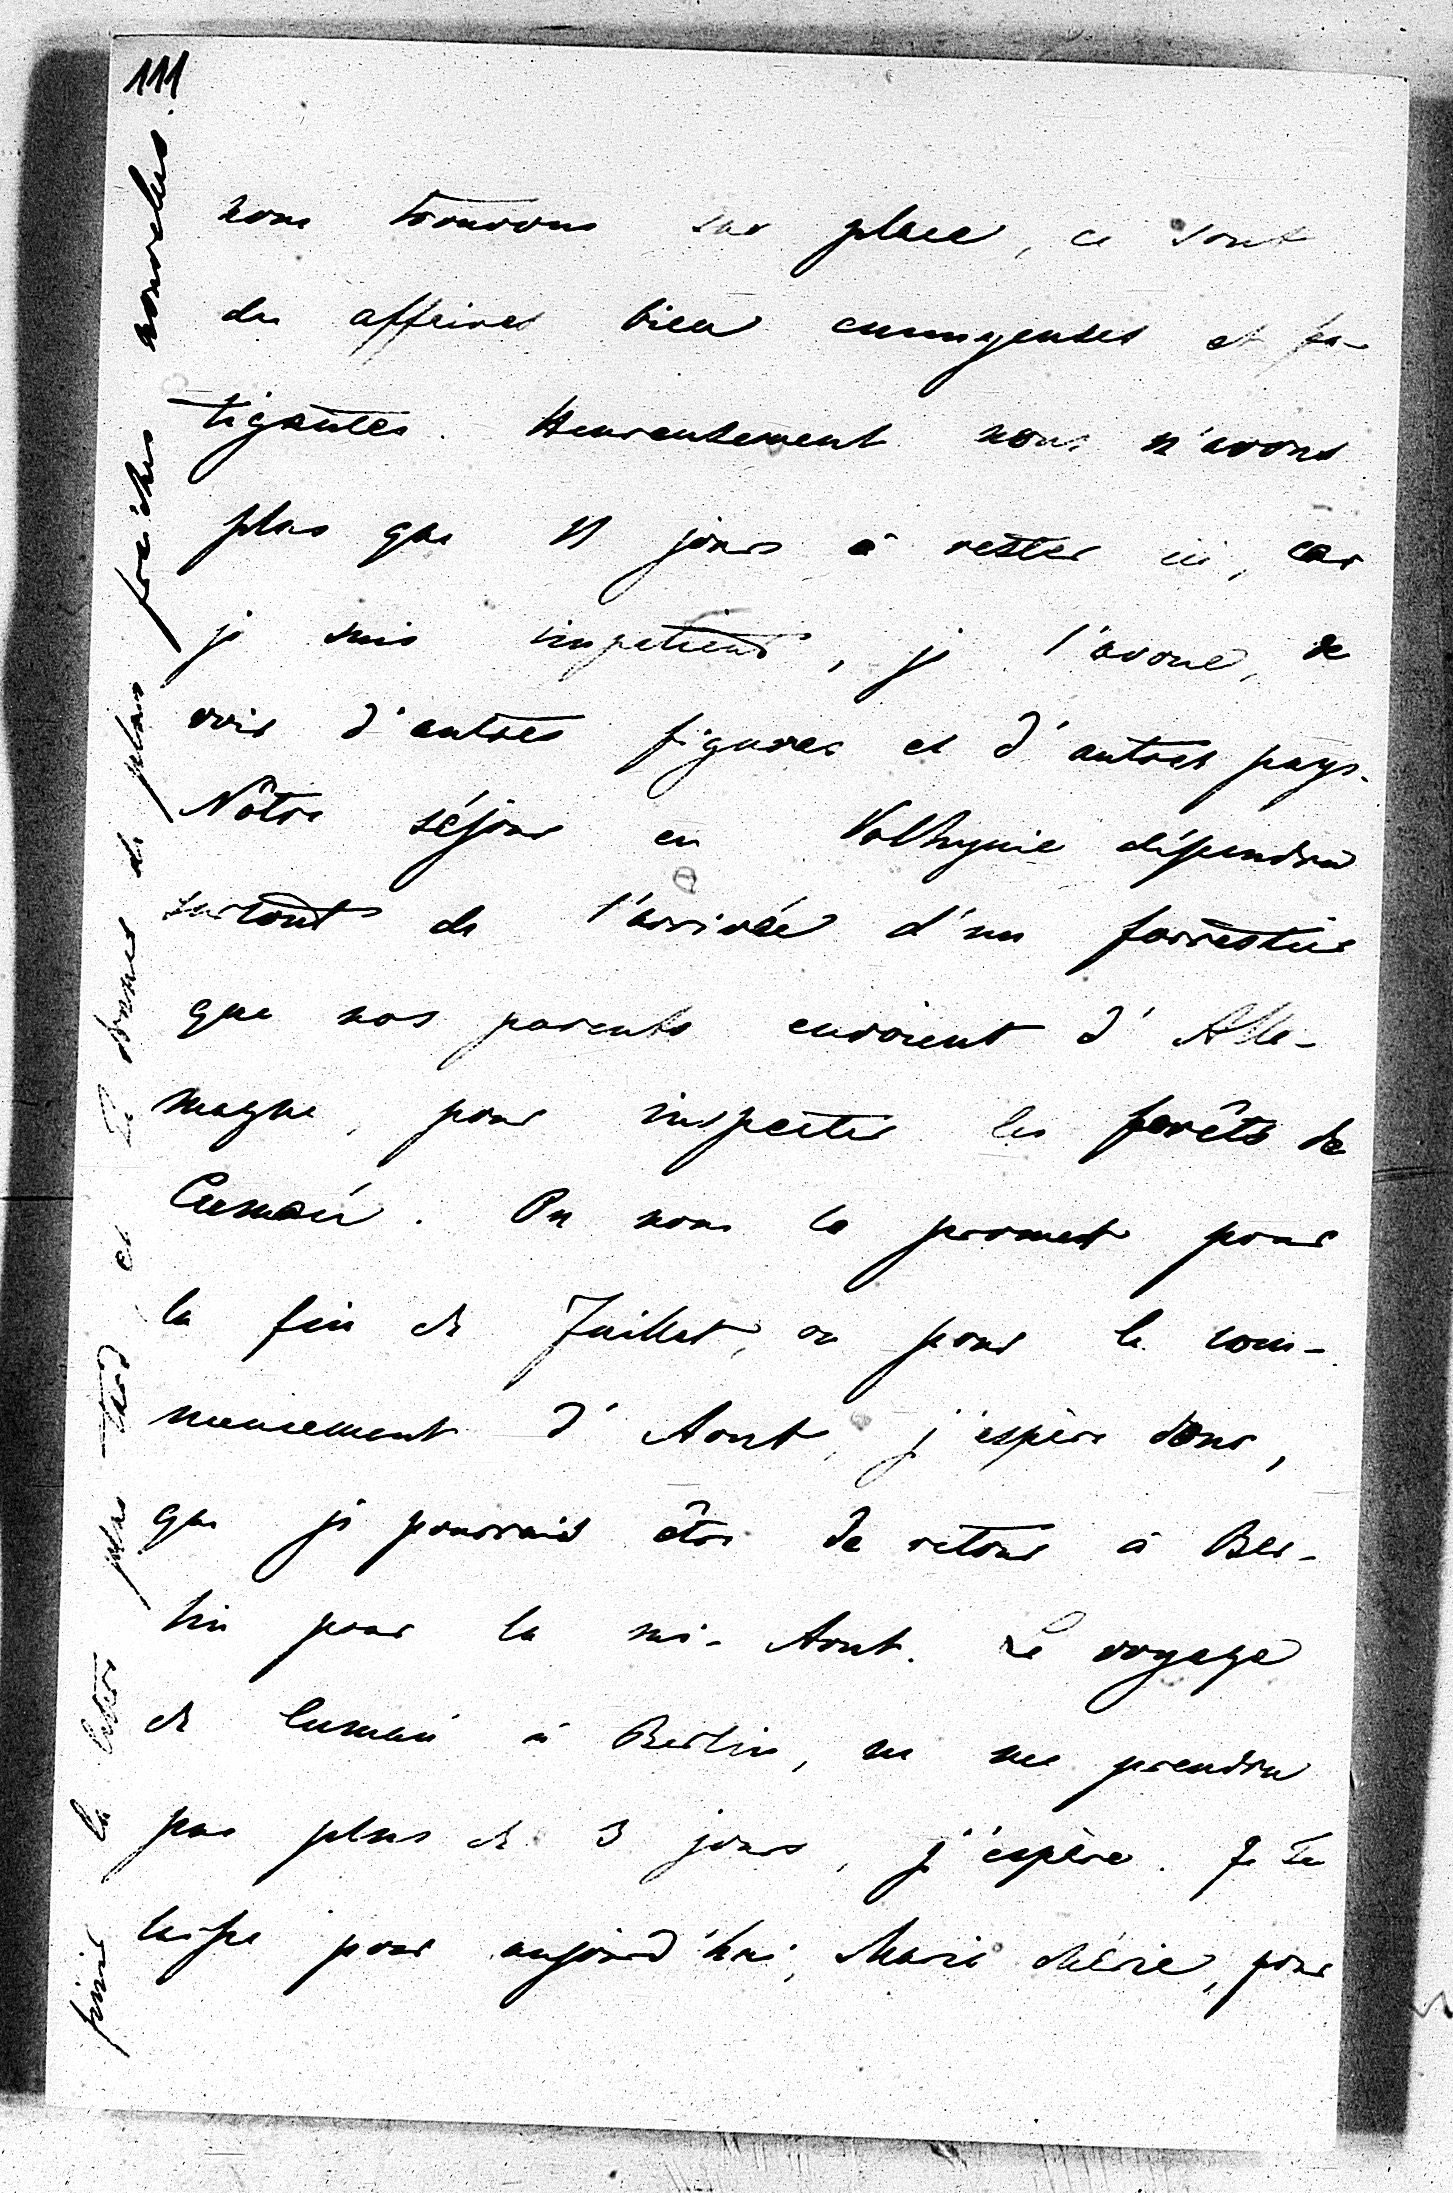 111
nous trouvons sur place, ce sont
des affaires bien ennuyeuses et fa-
tigantes. Heureusement nous n'avons
plus que 11 jours à rester ici, car
je suis impatient, je l'avoue, de
voir d'autres figures et d'autres pays.
Nôtre séjour en Volhynie dépendra
surtout de l'arrivée d'un forrestier
que nos parents envoient d'Alle-
magne, pour inspecter les forêts de
Cumań. On nous le promet pour
la fin de Juillet, ou pour le com-
mencement d'Aout, j'espère donc,
que je pourrais être de retour à Ber-
lin pour la mi-Aout. Le voyage
de Cumań à Berlin, ne me prendra
pas plus de 3 jours, j'espère. Je te
laisse pour aujourd'hui, Marie chérie, pour
finir la lettre plus tard, et te donner de plus fraiches nouvelles.